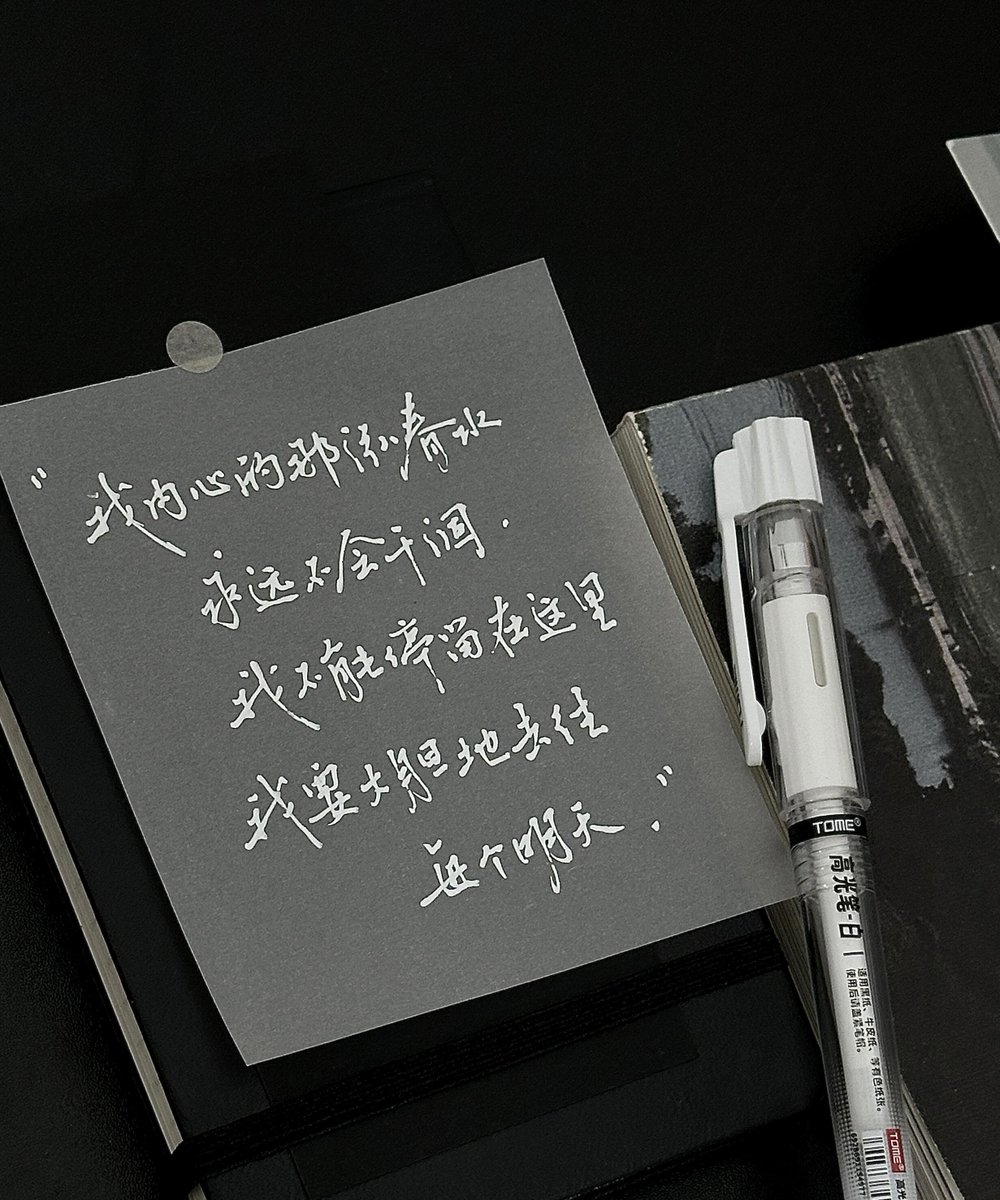 “我内心的那泓春水
永远不会干涸.
我不能停留在这里
我要大胆地去往
每个明天.”
TOME®
高光笔-白
适用黑纸、牛皮纸、等有色纸张。
使用后请盖紧笔帽。
TOME®
高光